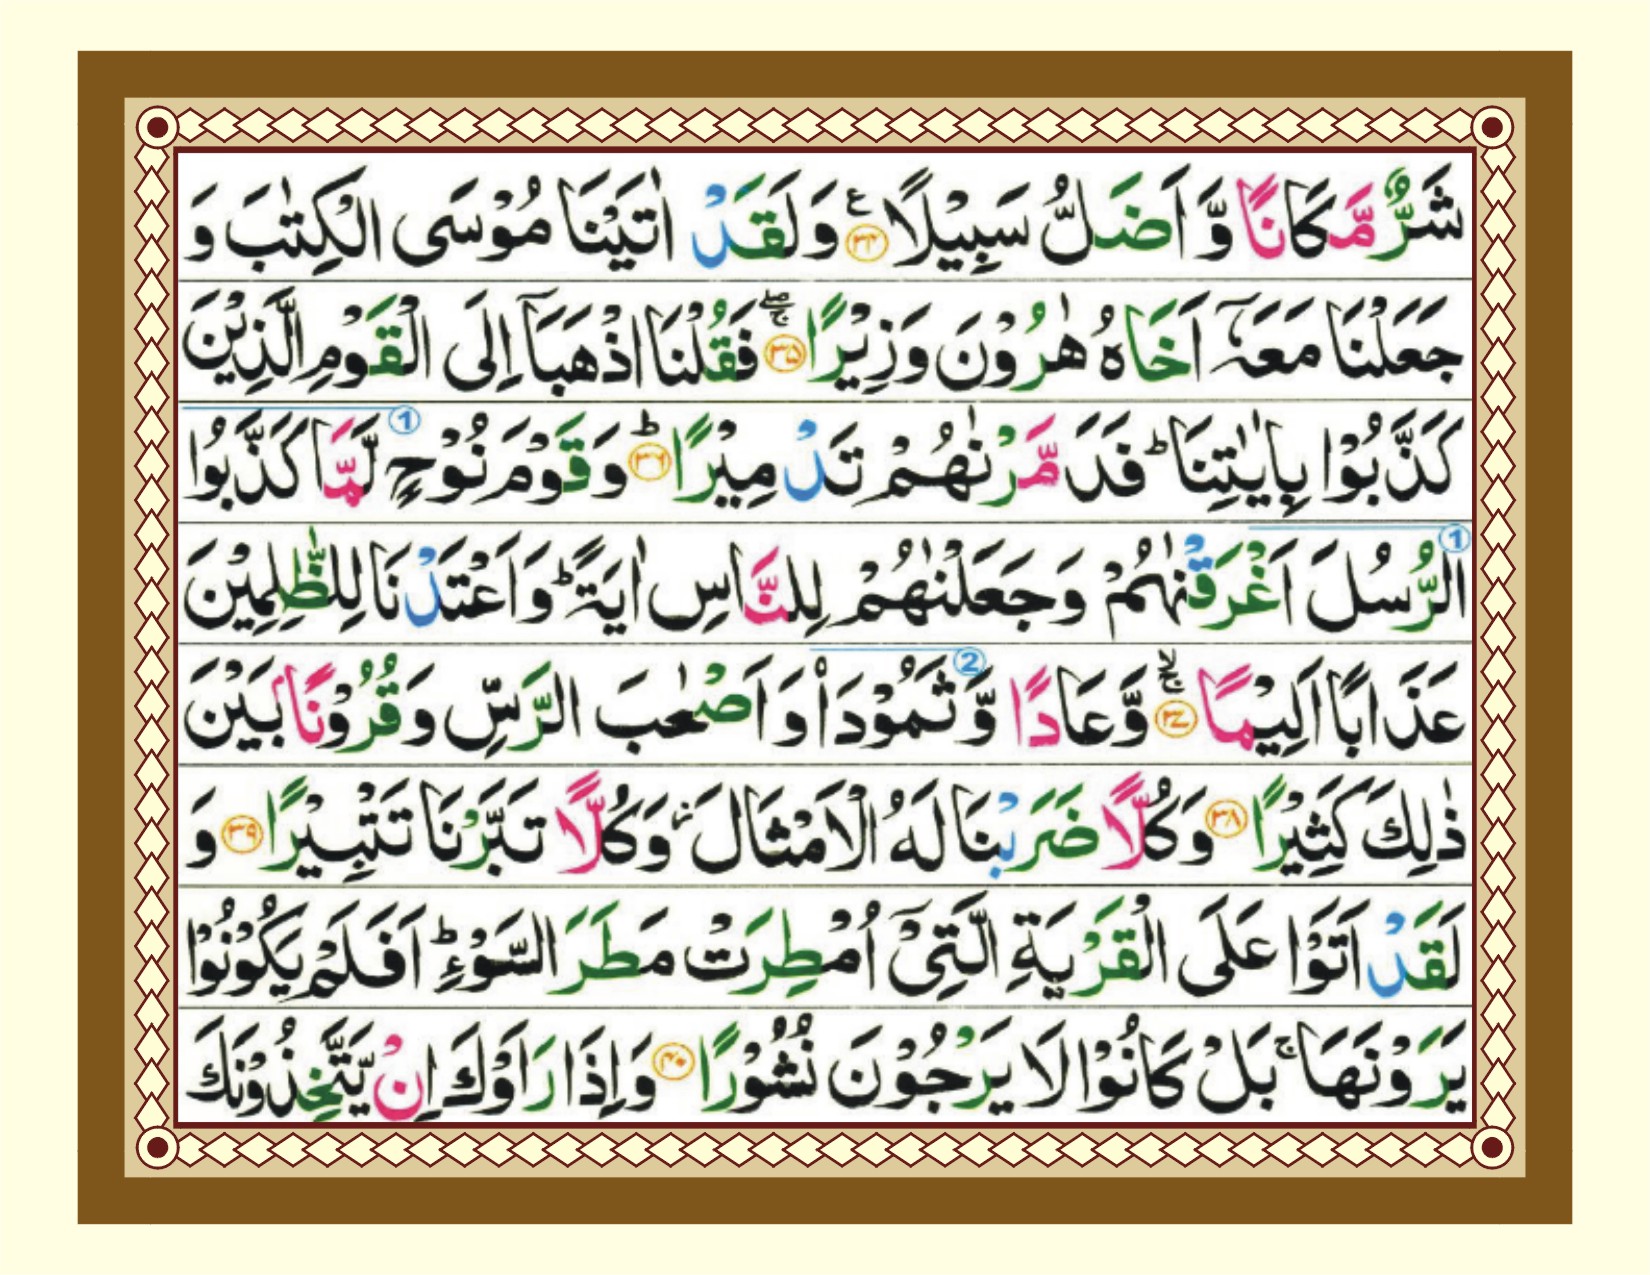 شَرٌّ مَّكَانًا وَّ اَضَلُّ سَبِيْلًا ﴿۳۴﴾ ع وَ لَقَدْ اٰتَيْنَا مُوْسَى الْكِتٰبَ وَ
جَعَلْنَا مَعَهٗۤ اَخَاهُ هٰرُوْنَ وَزِيْرًا ﴿۳۵﴾ ۚۖ فَقُلْنَا اذْهَبَاۤ اِلَى الْقَوْمِ الَّذِيْنَ
كَذَّبُوْا بِاٰيٰتِنَا ؕ فَدَمَّرْنٰهُمْ تَدْمِيْرًا ﴿۳۶﴾ ؕ وَ قَوْمَ نُوْحٍ ① لَّمَّا كَذَّبُوا
① الرُّسُلَ اَغْرَقْنٰهُمْ وَ جَعَلْنٰهُمْ لِلنَّاسِ اٰيَةً ؕ وَ اَعْتَدْنَا لِلظّٰلِمِيْنَ
عَذَابًا اَلِيْمًا ﴿۳۷﴾ ۚۙ وَّ عَادًا ② وَّ ثَمُوْدَا۠ وَ اَصْحٰبَ الرَّسِّ وَ قُرُوْنًۢا بَيْنَ
ذٰلِكَ كَثِيْرًا ﴿۳۸﴾ وَ كُلًّا ضَرَبْنَا لَهُ الْاَمْثَالَ ؗ وَ كُلًّا تَبَّرْنَا تَتْبِيْرًا ﴿۳۹﴾ وَ
لَقَدْ اَتَوْا عَلَى الْقَرْيَةِ الَّتِيْۤ اُمْطِرَتْ مَطَرَ السَّوْءِ ؕ اَفَلَمْ يَكُوْنُوْا
يَرَوْنَهَا ۚ بَلْ كَانُوْا لَا يَرْجُوْنَ نُشُوْرًا ﴿۴۰﴾ وَ اِذَا رَاَوْكَ اِنْ يَّتَّخِذُوْنَكَ